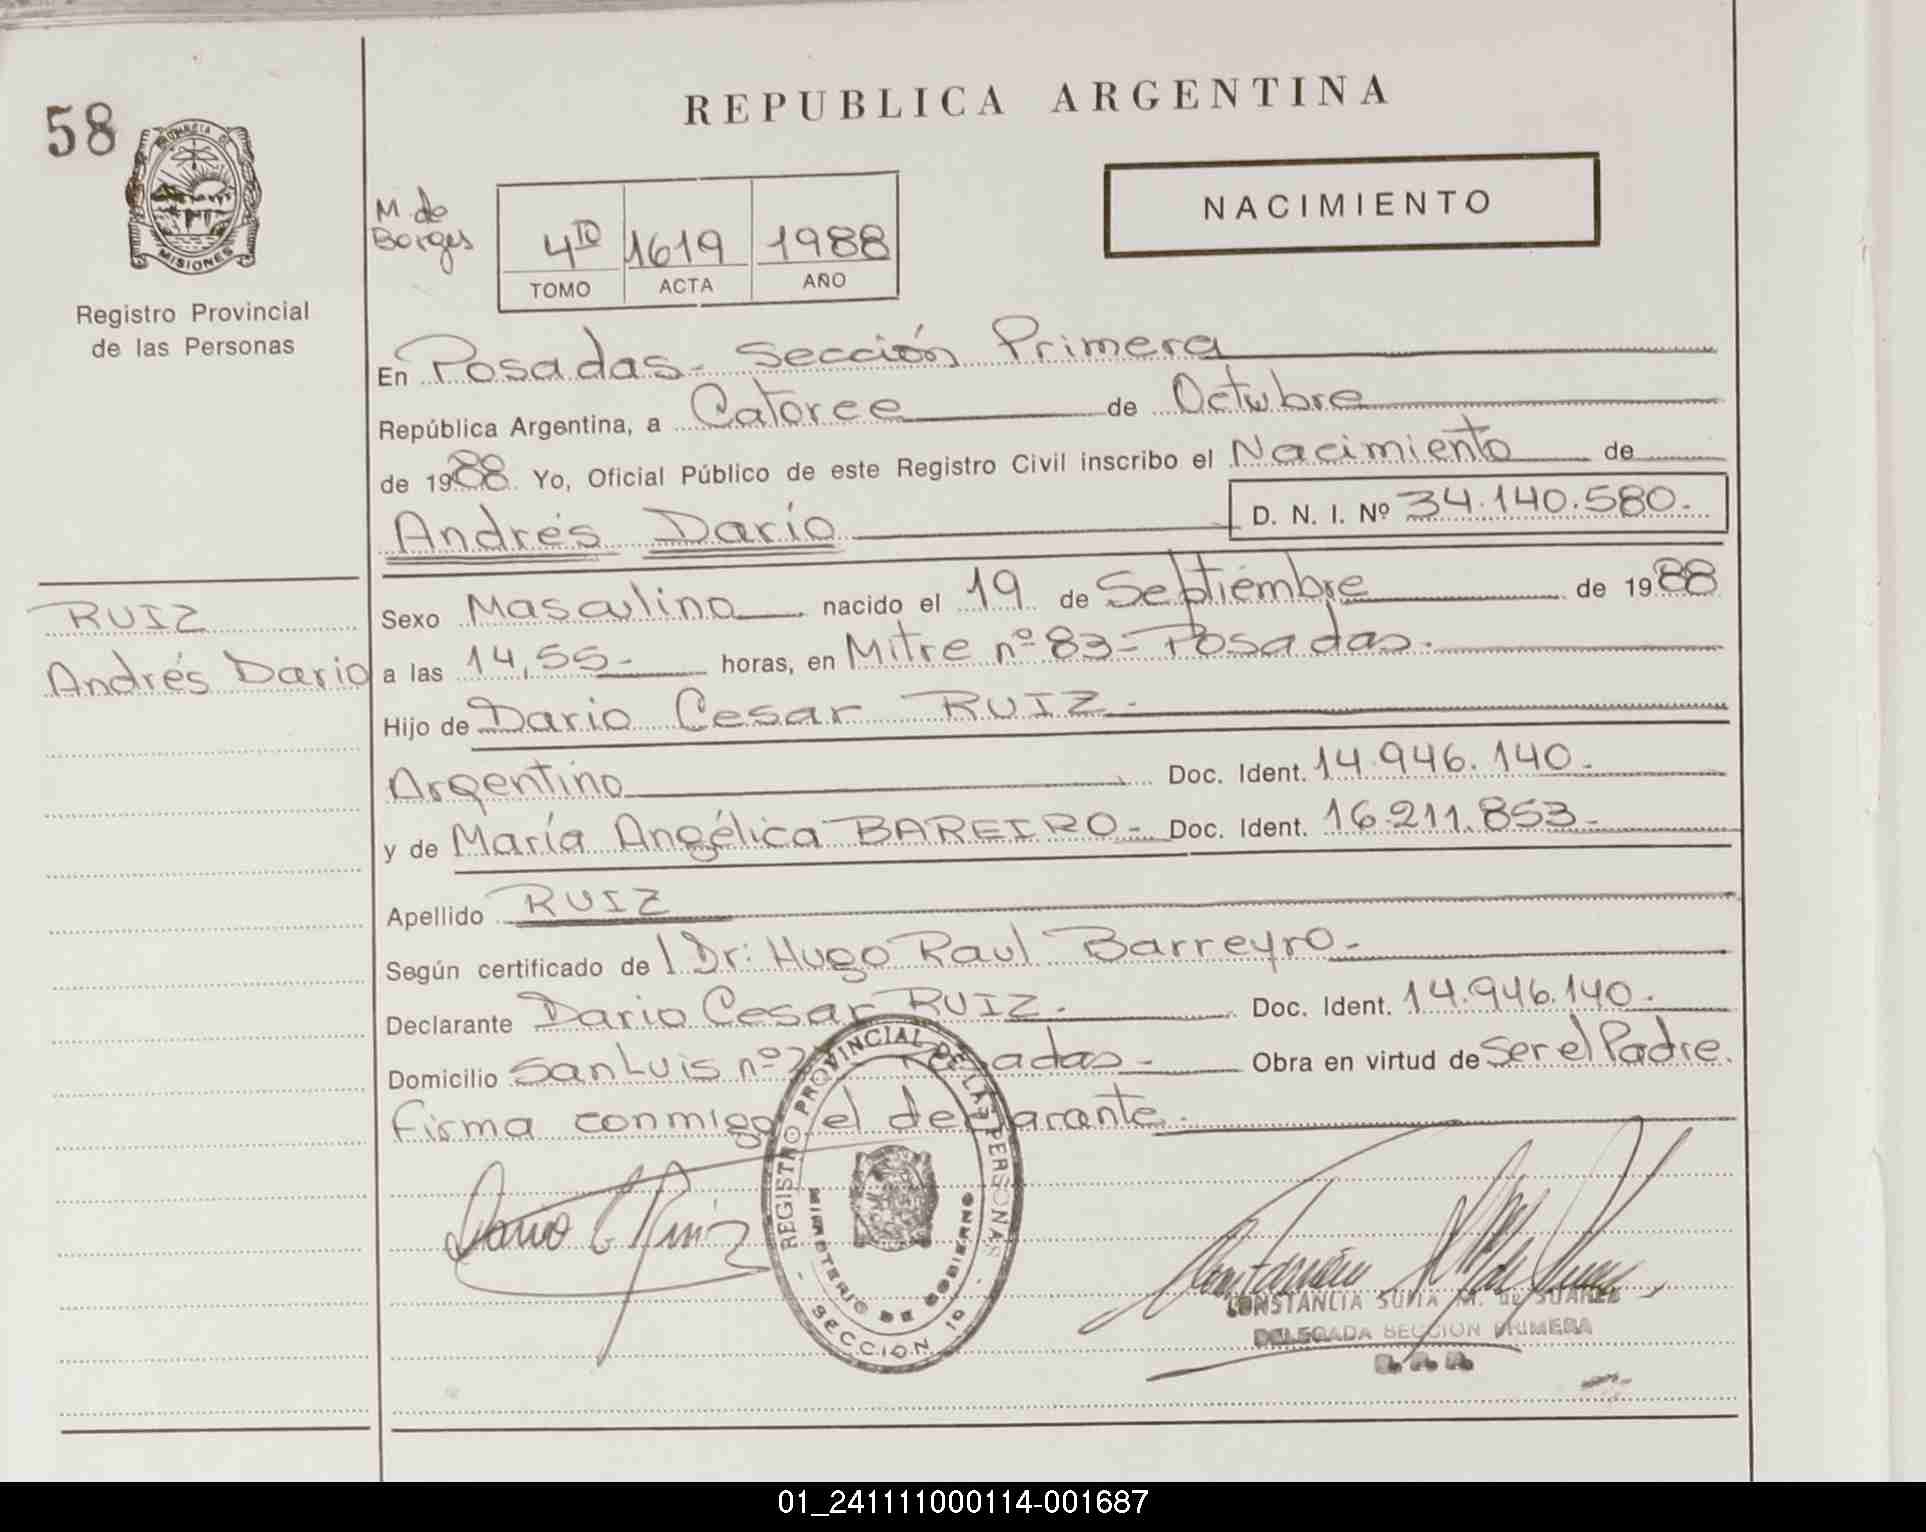 58
PROVINCIA DE
MISIONES
Registro Provincial
de las Personas
REPUBLICA ARGENTINA
NACIMIENTO
M. de
Borges
4to 1619 1988
TOMO ACTA AÑO
En Posadas - Sección Primera
República Argentina, a Catorce de Octubre
de 1988. Yo, Oficial Público de este Registro Civil inscribo el Nacimiento de
Andrés Darío D. N. I. Nº 34.140.580.-
RUIZ
Andrés Dario
Sexo Masculino nacido el 19 de Septiembre de 1988
a las 14,55- horas, en Mitre nº 83 - Posadas.
Hijo de Dario Cesar RUIZ.-
Argentino Doc. Ident. 14.946.140.-
y de María Angélica BAREIRO- Doc. Ident. 16.211.853-
Apellido RUIZ
Según certificado de l Dr: Hugo Raul Barreyro.-
Declarante Dario Cesar RUIZ.- Doc. Ident. 14.946.140.-
Domicilio San Luis nº Posadas- Obra en virtud de Ser el Padre.
Firma conmigo el declarante.
Dario C Ruiz
REGISTRO PROVINCIAL DE LAS PERSONAS
MINISTERIO DE GOBIERNO
- SECCION 1a -
CONSTANCIA SOFIA M. de SUAREZ
DELEGADA SECCION PRIMERA
01_241111000114-001687